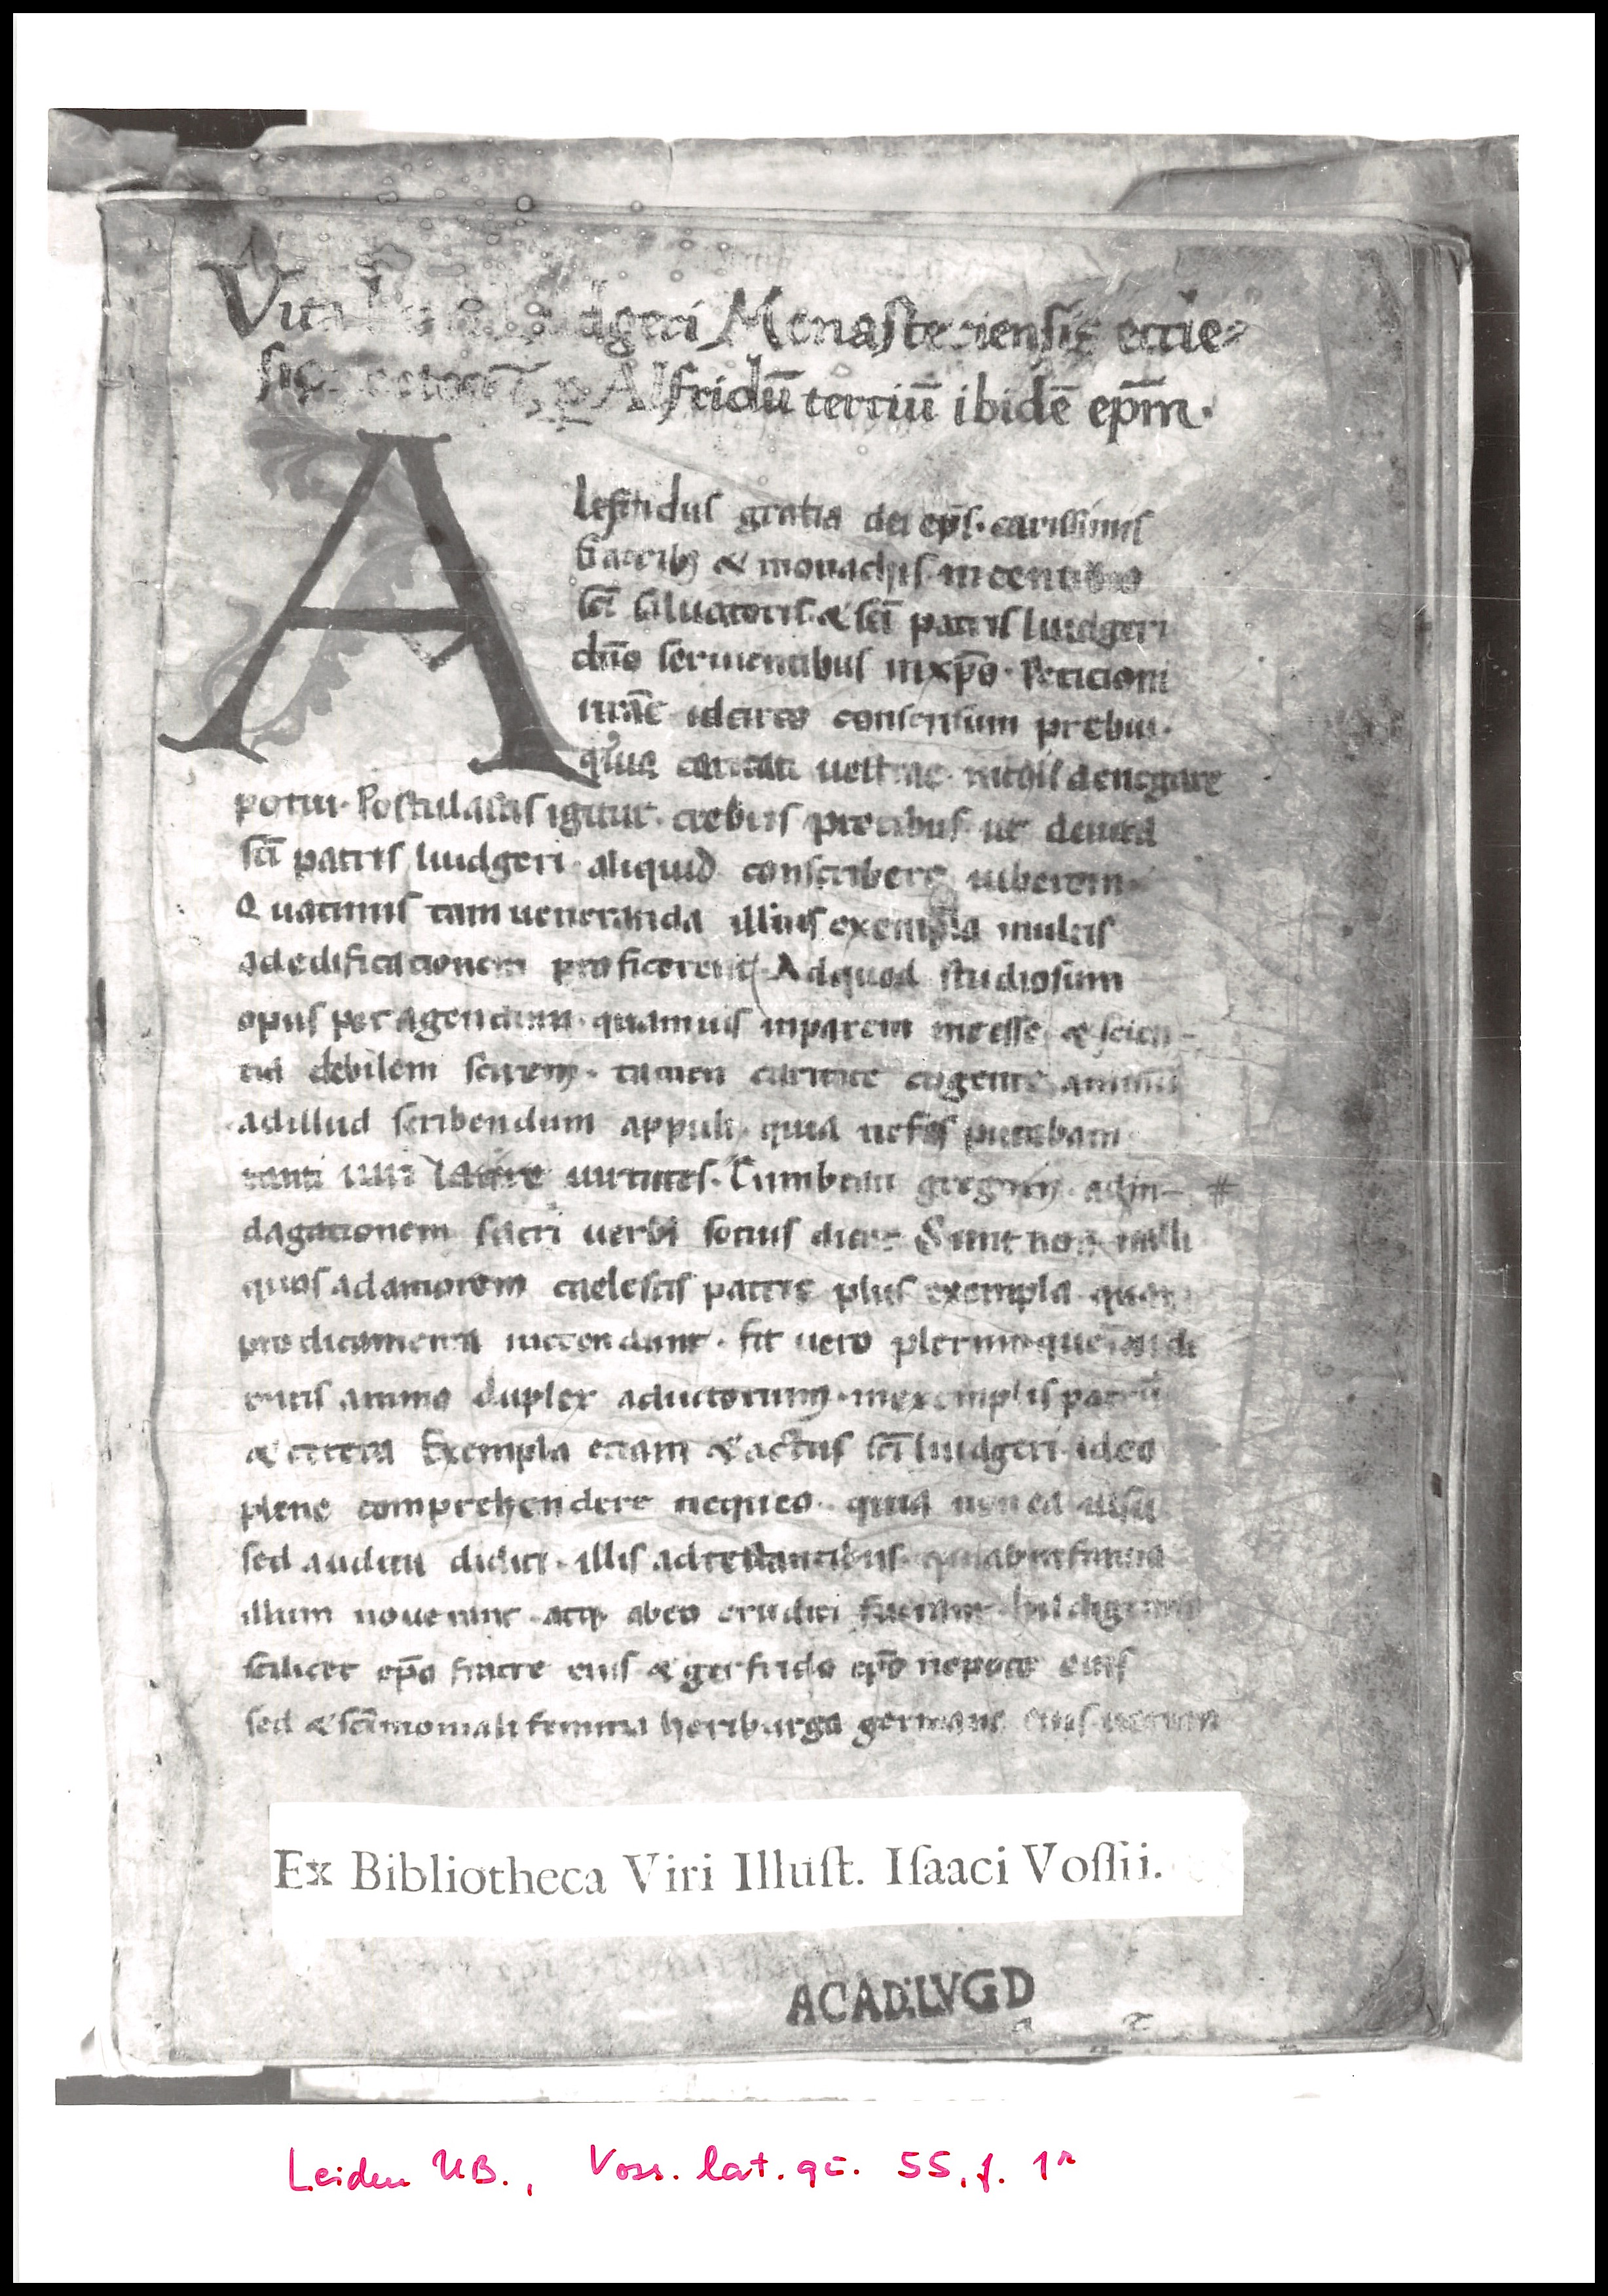 Vita dgeri Monasteriensis eccle⸗
sie p Alfridū terciū ibidē epm̄.
A
Lefridus gratia dei ep̄s. carissimis
fratrib; & monachis. in cenubio
sc̄i saluatoris. & sc̄i patris liudgeri
dn̄o seruientibus in xp̄o. Peticioni
ur̄ae idcirco consensum prebui.
quia caritati uestrae nichil denegare
potui. Postulastis igitur. crebris precibus. ut deuita
sc̄i patris liudgeri. aliquid conscribere iuberem.
Quatinus tam ueneranda illius exempla multis
adedificationem proficerent. Adquod studiosum
opus peragendum. quamuis inparem me esse, & scien-
tia debilem scirem. tamen caritate cogente animū
adillud scribendum appuli. quia nefas putabam
tanti uiri latere uirtutes. Cumbeati gregorii. adin- #
dagationem sacri uerbi socius dicit Sunt non nulli
quos ad amorem caelestis patrie plus exempla. quam
predicamenta succendunt. fit uero plerumque audi
entis animo duplex adiutorium. inexemplis patrū
& cetera Exempla etiam & actus sc̄i liudgeri. ideo
plene comprehendere nequeo. quia non ea uisu
sed auditu didici. illis adtestantibus.
illum nouerunt. atq; abeo eruditi fuerant. hildigrimo
scilicet ep̄o fratre eius & gerfrido ep̄o nepote eius
sed & sc̄imoniali femina heriburga germana eius
Ex Bibliotheca Viri Illuſt. Iſaaci Voſſii.
ACAD.LVGD
Leiden UB., Voss. lat. qu. 55, f. 1r